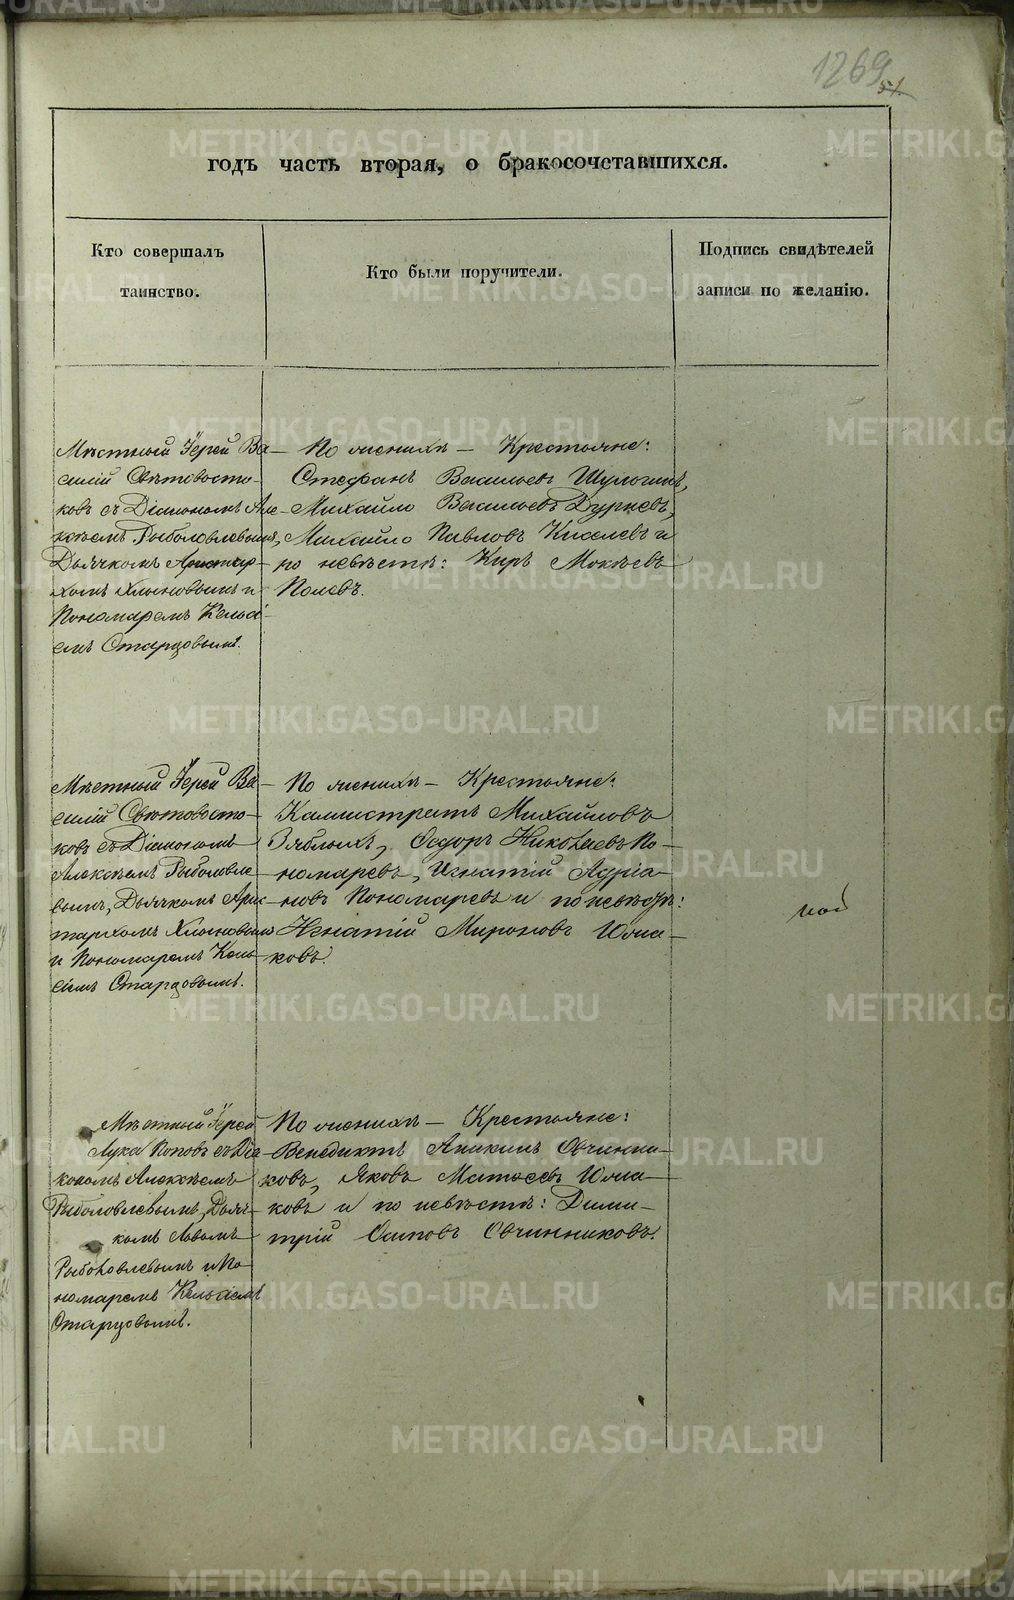 1269
51.
годъ часть вторая, о бракосочетавшихся.
Кто совершалъ
таинство.
Кто были поручители.
Подпись свидѣтелей
записи по желанію.
Мѣстный Іерей Ва-
силій Свѣтовосто-
ковъ съ Діакономъ Але-
ксѣемъ Рыболовлевымъ,
Дьячкомъ Аристар-
хомъ Хлыновымъ и
Пономаремъ Кельсі-
емъ Старцовымъ.
По женихѣ — Крестьяне:
Стефанъ Васильевъ
Михайло Васильевъ
Михайло Павловъ Киселевъ и
по невѣстѣ: Киръ Мокѣевъ
Полевъ.
Мѣстный Іерей Ва-
силій Свѣтовосто-
ковъ съ Діакономъ
Алексѣемъ Рыболовле-
вымъ, Дьячкомъ Арис-
тархомъ Хлыновымъ
и Пономаремъ Кель-
сіемъ Старцовымъ.
По женихѣ — Крестьяне:
Каллистратъ Михайловъ
Зяблыхъ, Ѳедоръ Николаевъ По-
номаревъ, Игнатій Адріа-
новъ Пономаревъ и по невѣстѣ:
Игнатій Мироновъ Южа-
ковъ.
Мѣстный Іерей
Лука Поповъ съ Діа-
кономъ Алексѣемъ
Рыболовлевымъ, Дьяч-
комъ Львомъ
Рыболовлевымъ и По-
номаремъ Кельсіемъ
Старцовымъ.
По женихѣ — Крестьяне:
Венедиктъ Аникинъ Овчинни-
ковъ, Яковъ Матвеевъ Южа-
ковъ и по невѣстѣ: Дими-
трій Осиповъ Овчинниковъ.
METRIKI.GASO-URAL.RU